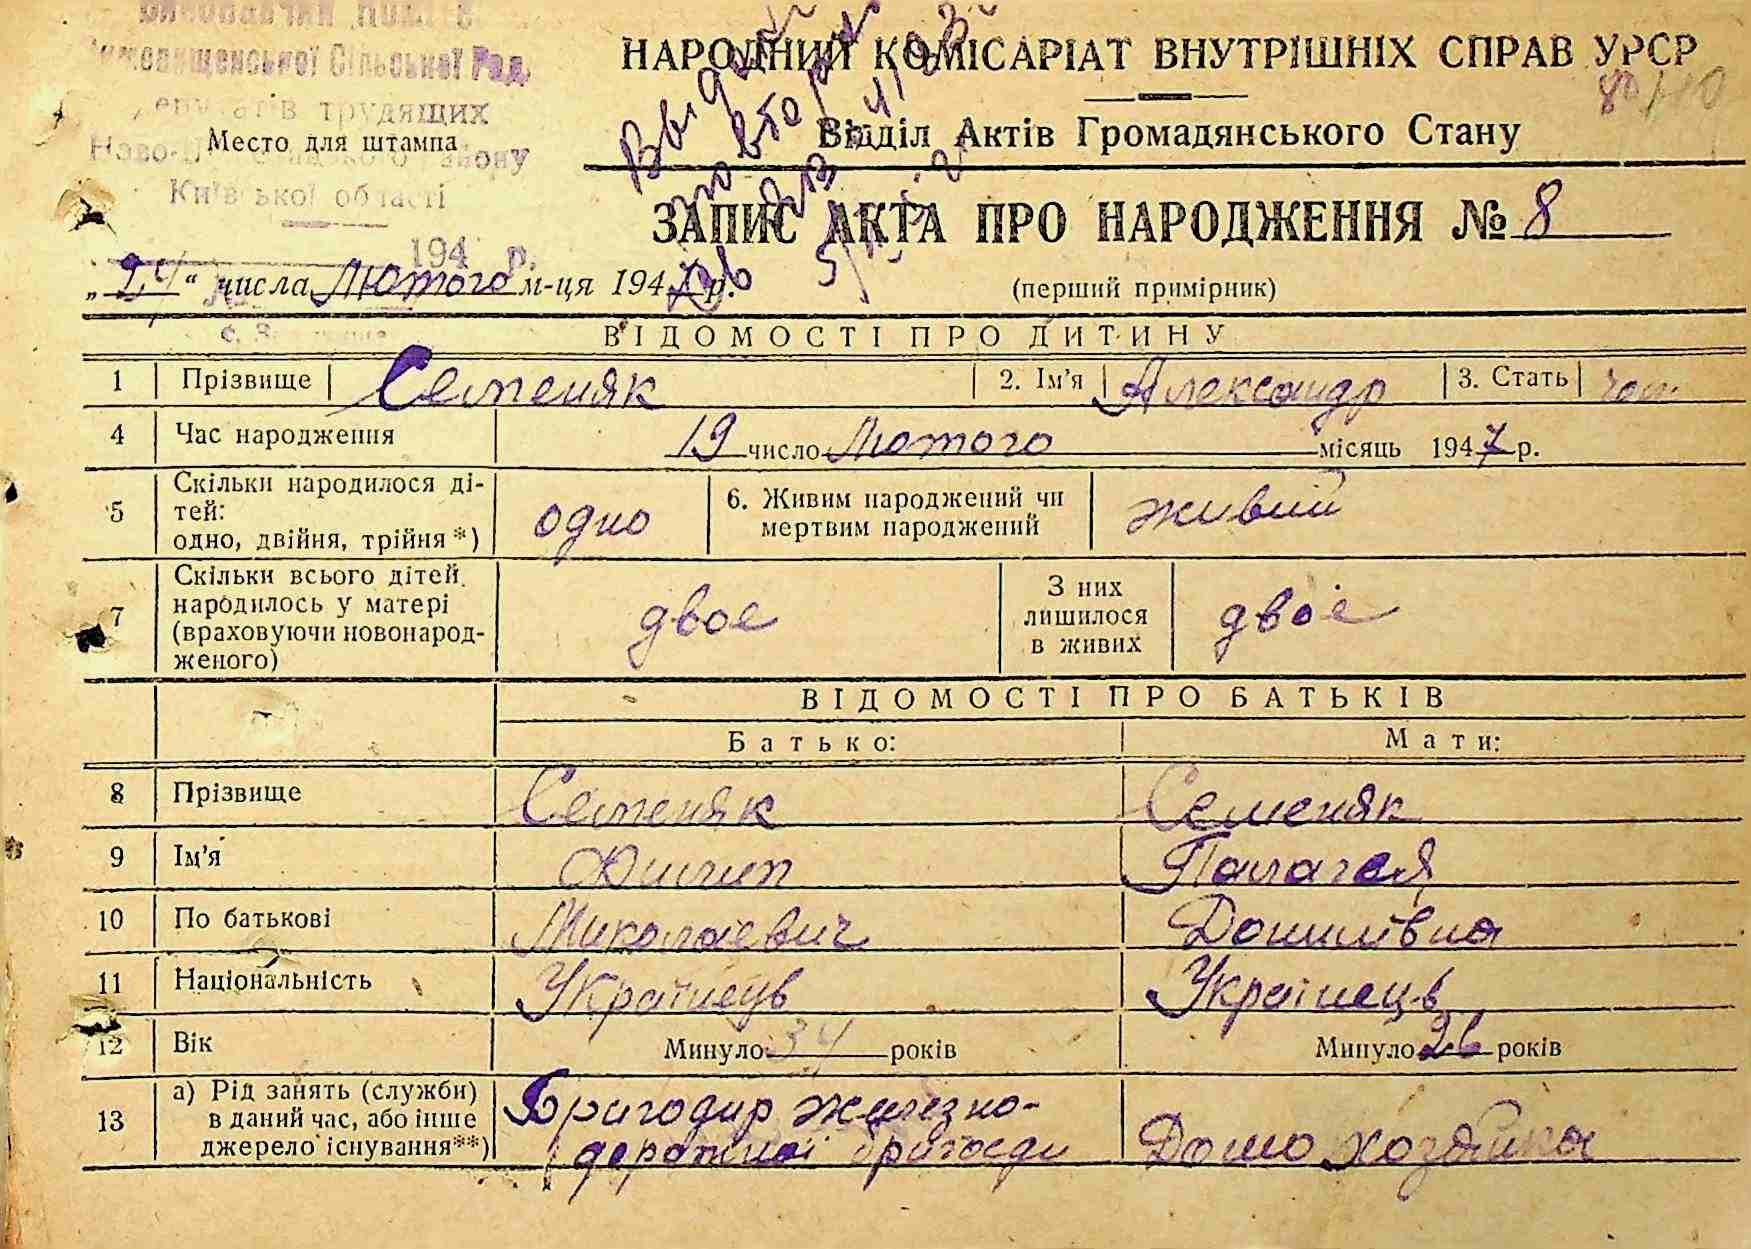 Сільської Рад
трудящих
Место для штампа
Київської області
194 р.
НАРОДНИЙ КОМІСАРІАТ ВНУТРІШНІХ СПРАВ УРСР
Відділ Актів Громадянського Стану
ЗАПИС АКТА ПРО НАРОДЖЕННЯ № 8
„24“ числа Лютого м-ця 1947 р.
(перший примірник)
ВІДОМОСТІ ПРО ДИТИНУ
1 Прізвище Семеняк 2. Ім'я Александр 3. Стать чол.
4 Час народження 19 число Лютого місяць 1947 р.
5 Скільки народилося ді-
тей:
одно, двійня, трійня *) одно 6. Живим народжений чи
мертвим народжений живий
7 Скільки всього дітей
народилось у матері
(враховуючи новонарод-
женого) двое З них
лишилося
в живих двоє
ВІДОМОСТІ ПРО БАТЬКІВ
Батько: Мати:
8 Прізвище Семеняк Семеняк
9 Ім'я Филип Палагея
10 По батькові Миколаєвич Данилівна
11 Національність Українець Українець
12 Вік Минуло 34 років Минуло 26 років
13 а) Рід занять (служби)
в даний час, або інше
джерело існування**) Бригадир желєзно-
дорожної бригади Домохозяйка